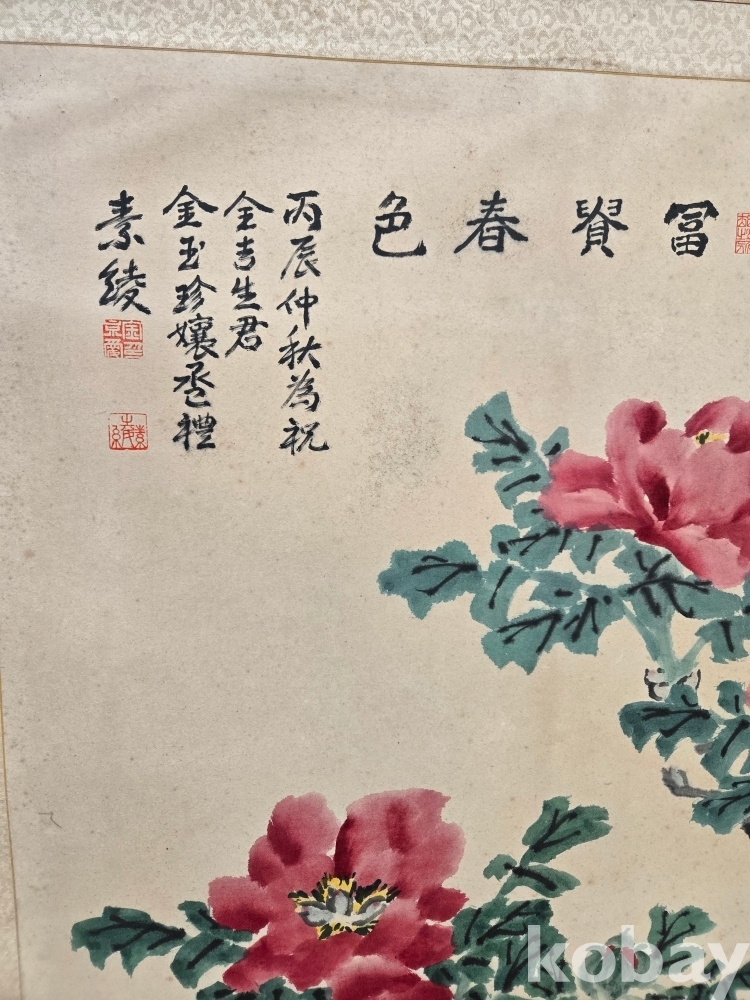 冨貴春色
丙辰仲秋為祝
全吉生君
金玉珍孃巹禮
素綾
素綾
kobay